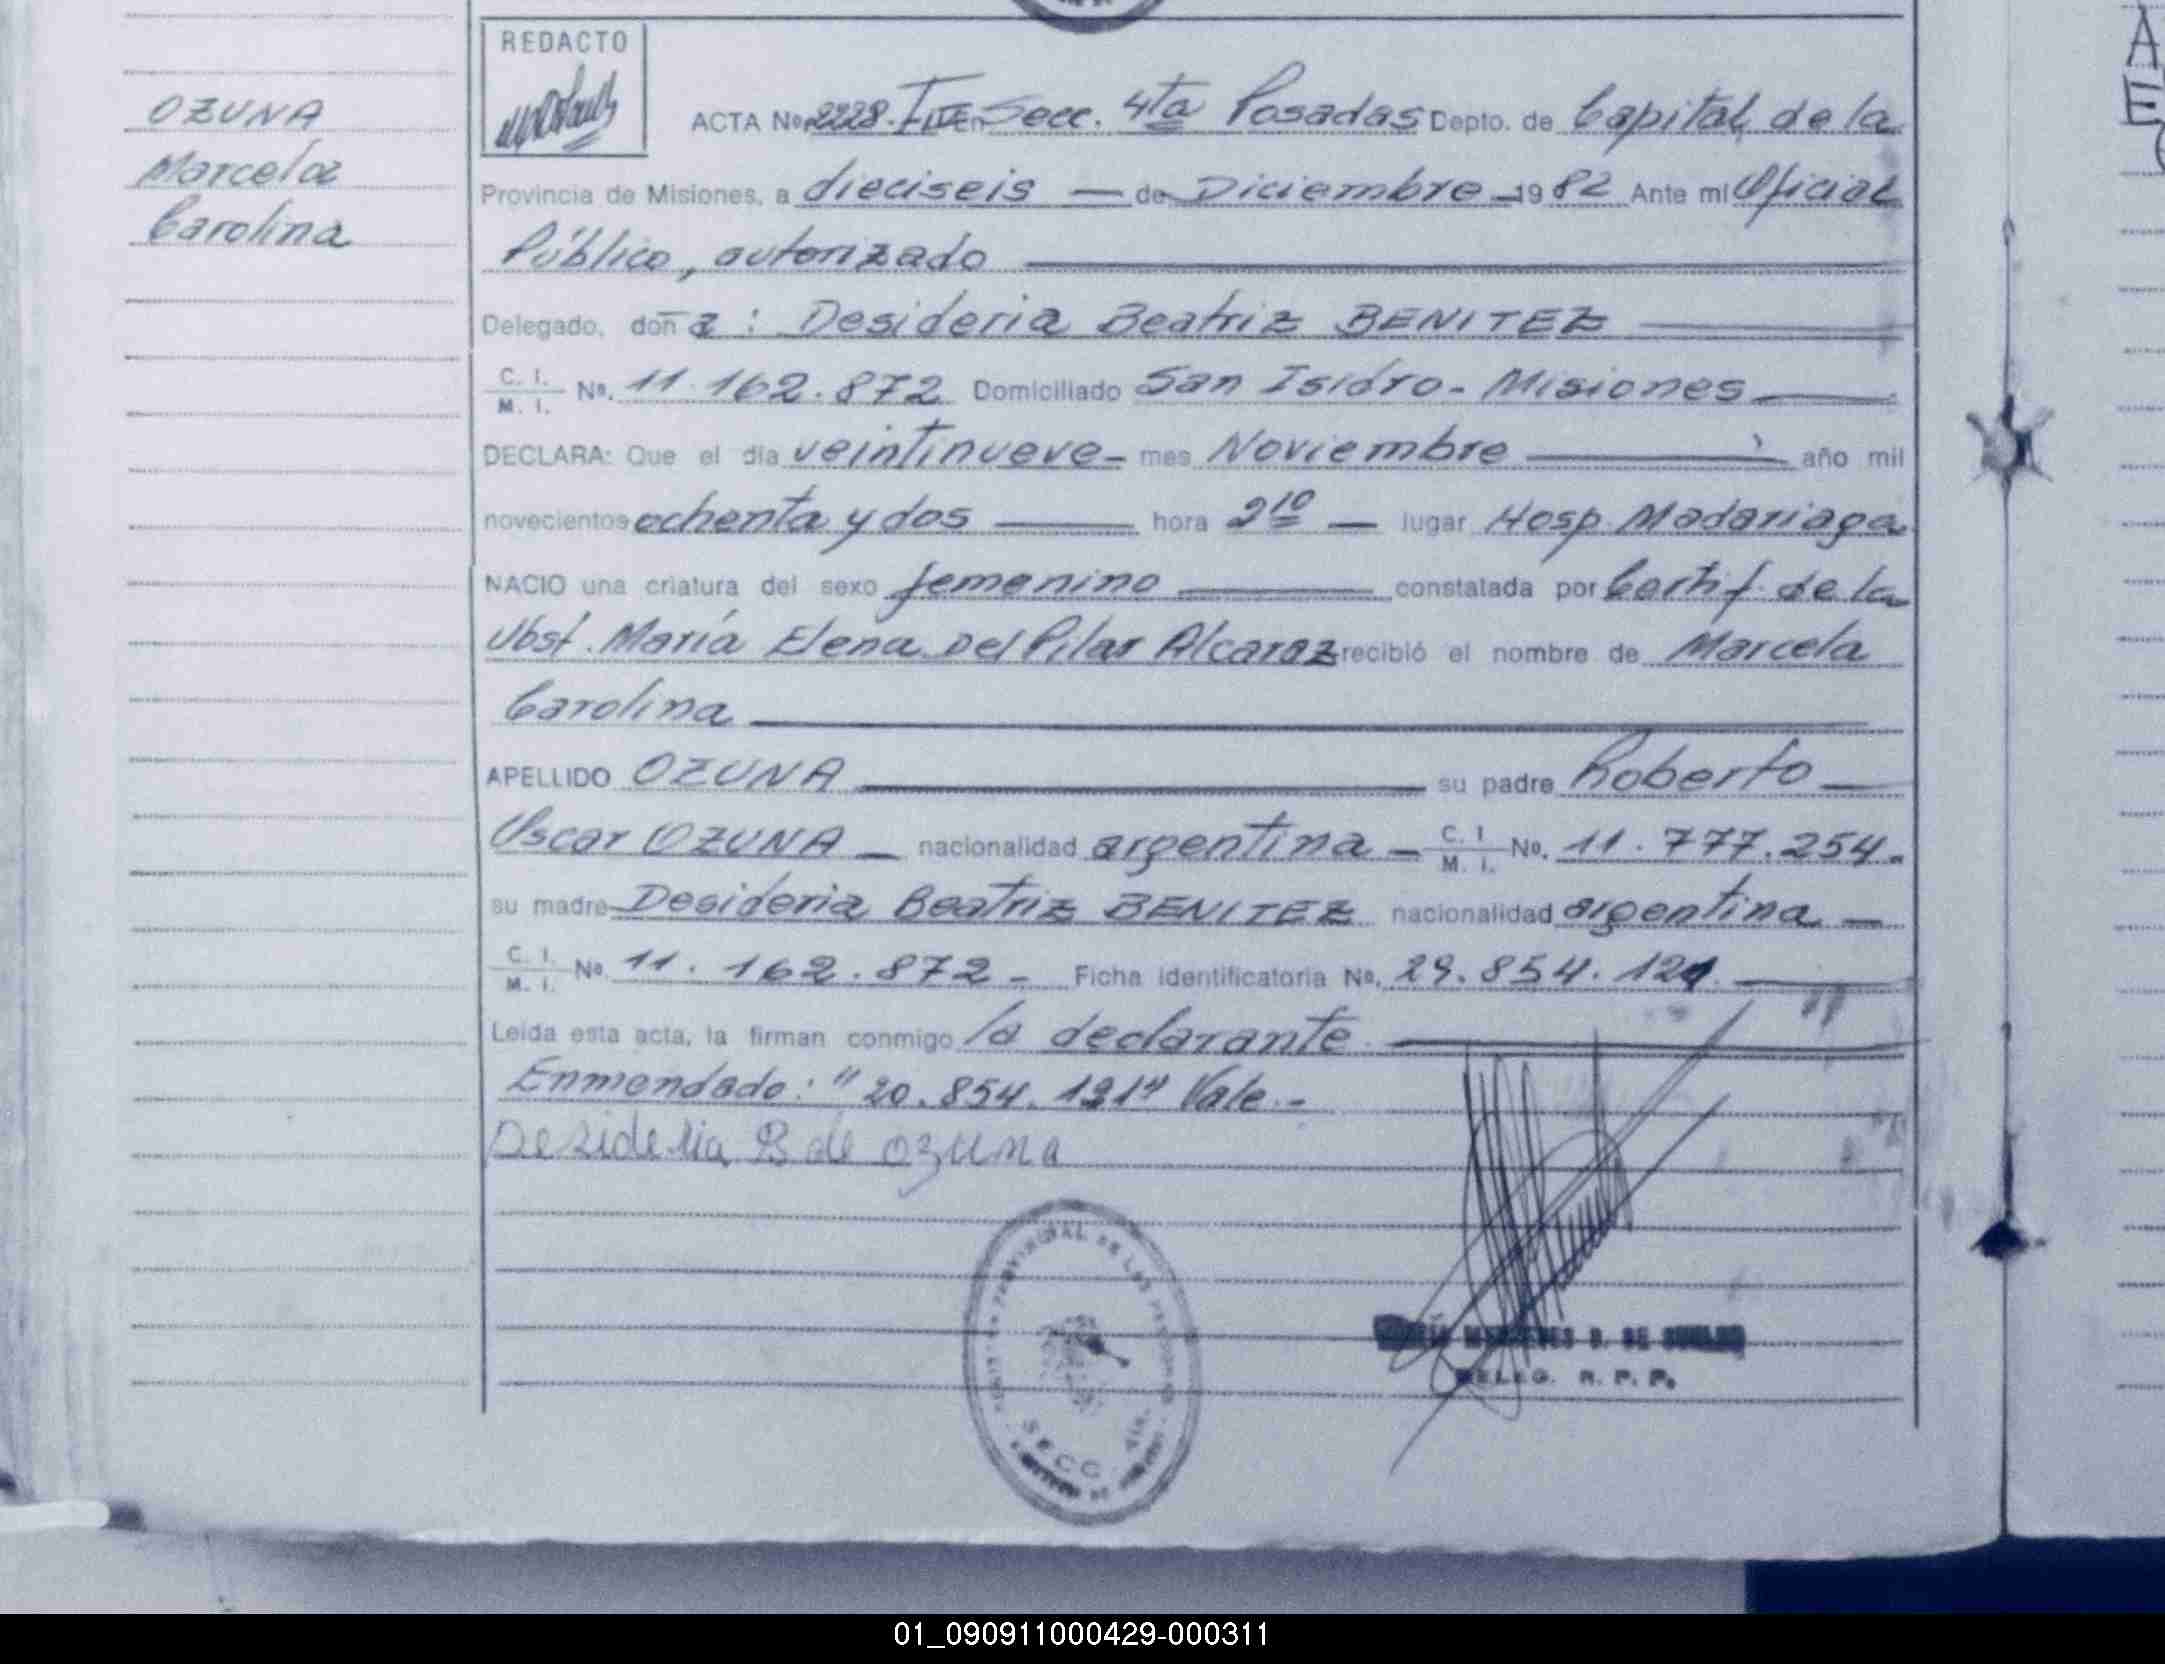 OZUNA
Marcela
Carolina
REDACTO
ACTA No. 2228. T. En Secc. 4ta Posadas Depto. de Capital de la
Provincia de Misiones, a dieciseis — de Diciembre — 1982 Ante mi Oficial
Público, autorizado
Delegado, doña : Desideria Beatriz BENITEZ
C. I. M. I. No. 11.162.872 Domiciliado San Isidro - Misiones
DECLARA: Que el dia veintinueve - mes Noviembre año mil
novecientos ochenta y dos hora 2 10 — lugar Hosp. Madariaga
NACIO una criatura del sexo femenino constatada por Certif. de la
Obst. María Elena Del Pilar Alcaraz recibió el nombre de Marcela
Carolina
APELLIDO OZUNA su padre Roberto
Oscar OZUNA — nacionalidad argentina — C. I. M. I. No. 11.777.254.
su madre Desideria Beatriz BENITEZ nacionalidad argentina —
C. I. M. I. No. 11.162.872 - Ficha identificatoria No. 29.854.121.
Leida esta acta, la firman conmigo la declarante
Enmendado: "20.854.121" Vale.-
Desideria B de ozuna
PROVINCIAL DE LAS PERSONAS
SECC. 4ta.
MERCEDES DE
DELEG. R. P. P.
01_090911000429-000311